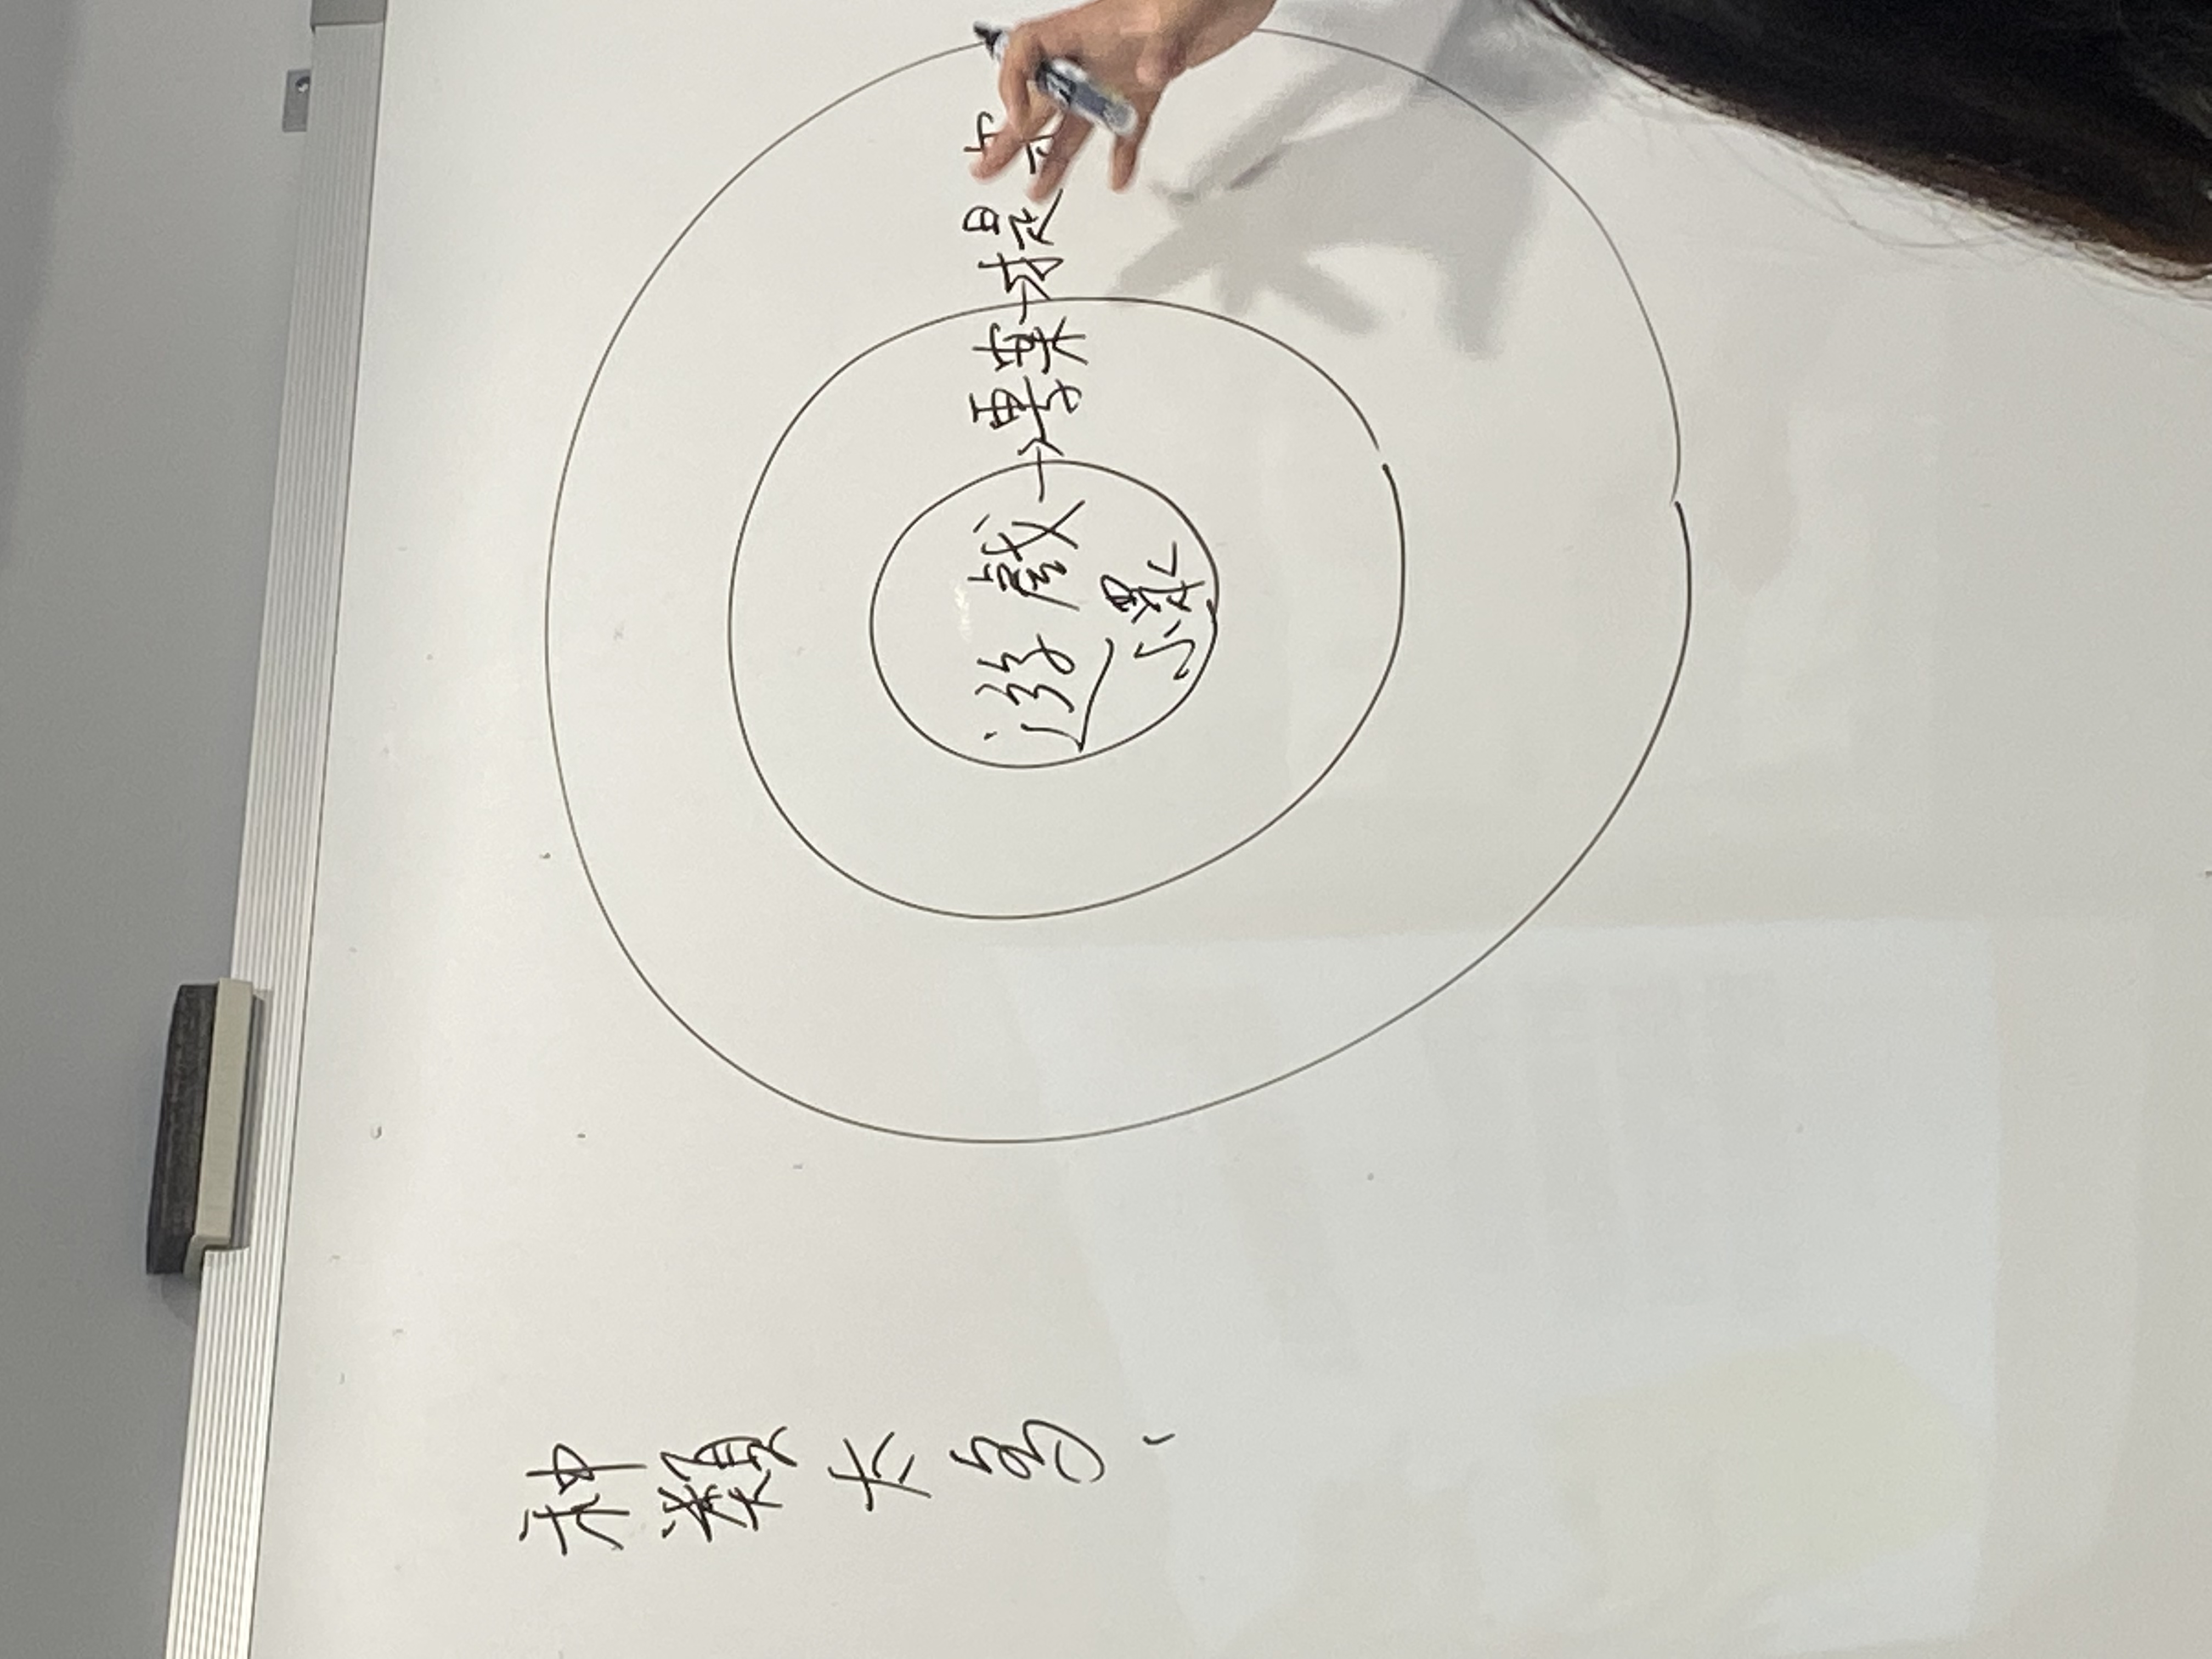 种類太多、
遊戲→專案→提案
小眾